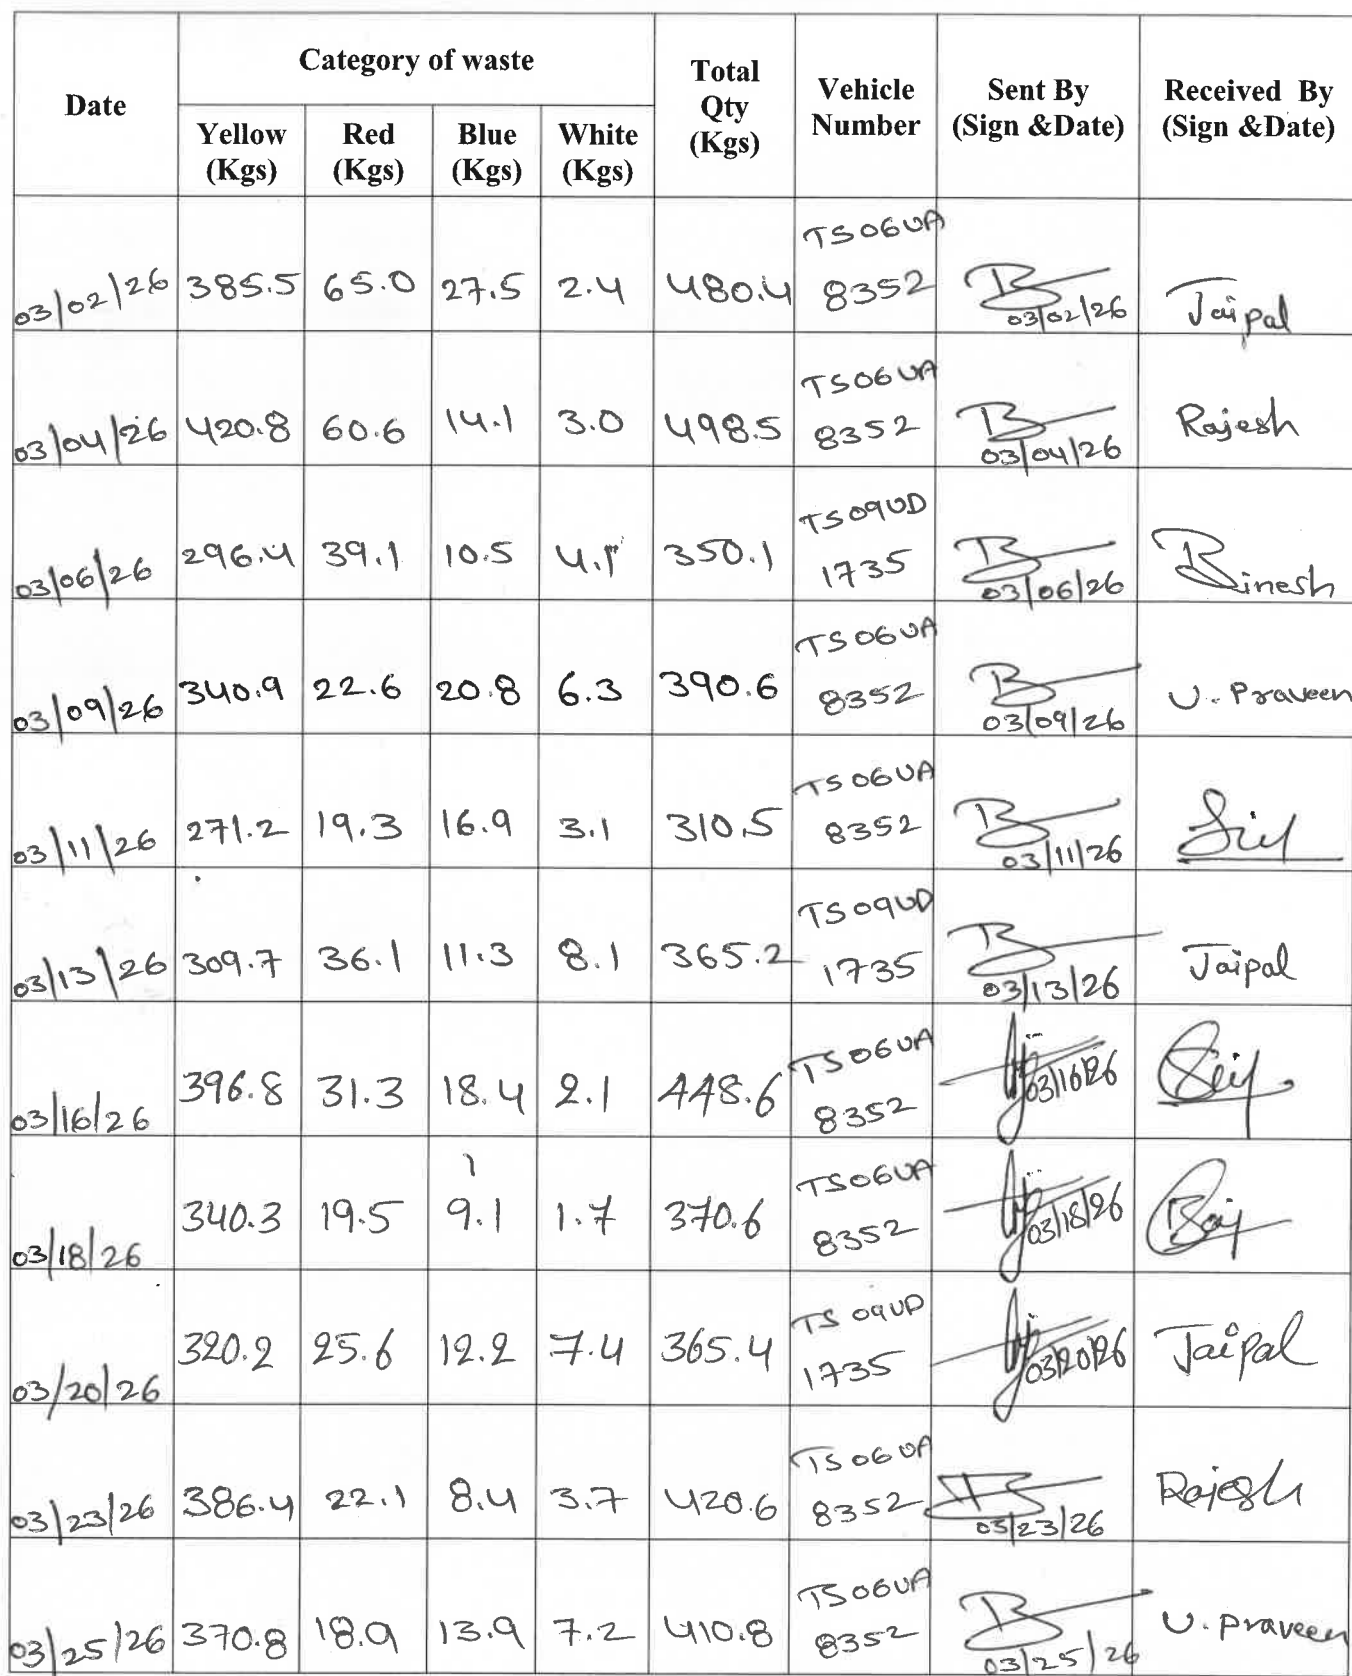 Date | Category of waste | Total Qty (Kgs) | Vehicle Number | Sent By (Sign &Date) | Received By (Sign &Date)
Yellow (Kgs) | Red (Kgs) | Blue (Kgs) | White (Kgs)
03/02/26 | 385.5 | 65.0 | 27.5 | 2.4 | 480.4 | TS06UA 8352 | 03/02/26 | Jaipal
03/04/26 | 420.8 | 60.6 | 14.1 | 3.0 | 498.5 | TS06UA 8352 | 03/04/26 | Rajesh
03/06/26 | 296.4 | 39.1 | 10.5 | 4.1 | 350.1 | TS09UD 1735 | 03/06/26 | Binesh
03/09/26 | 340.9 | 22.6 | 20.8 | 6.3 | 390.6 | TS06UA 8352 | 03/09/26 | U. Praveen
03/11/26 | 271.2 | 19.3 | 16.9 | 3.1 | 310.5 | TS06UA 8352 | 03/11/26
03/13/26 | 309.7 | 36.1 | 11.3 | 8.1 | 365.2 | TS09UD 1735 | 03/13/26 | Jaipal
03/16/26 | 396.8 | 31.3 | 18.4 | 2.1 | 448.6 | TS06UA 8352 | 03/16/26
03/18/26 | 340.3 | 19.5 | 9.1 | 1.7 | 370.6 | TS06UA 8352 | 03/18/26
03/20/26 | 320.2 | 25.6 | 12.2 | 7.4 | 365.4 | TS09UD 1735 | 03/20/26 | Jaipal
03/23/26 | 386.4 | 22.1 | 8.4 | 3.7 | 420.6 | TS06UA 8352 | 03/23/26 | Rajesh
03/25/26 | 370.8 | 18.9 | 13.9 | 7.2 | 410.8 | TS06UA 8352 | 03/25/26 | U. Praveen